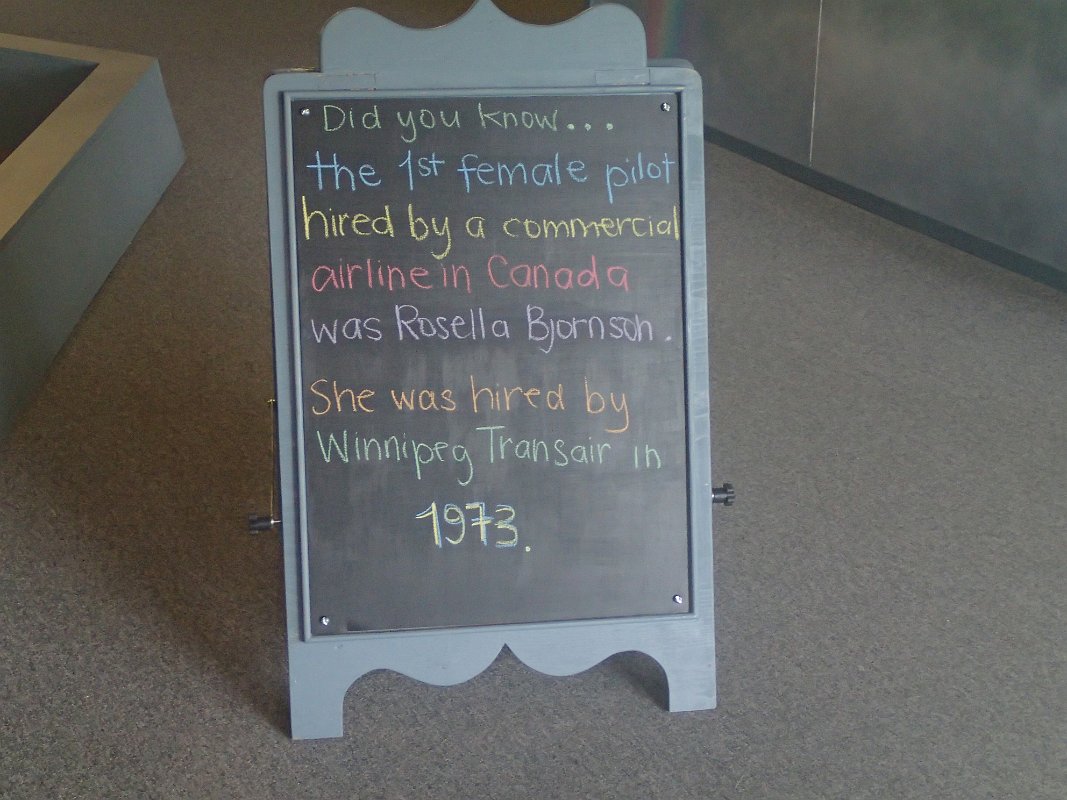 Did you know...
the 1st female pilot
hired by a commercial
airline in Canada
was Rosella Bjornson.
She was hired by
Winnipeg Transair in
1973.